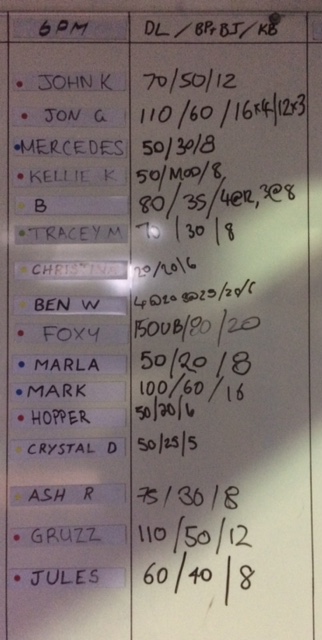 6PM DL/BPrBJ/KB
JOHN K 70/50/12
JON G 110/60/16x4/12x3
MERCEDES 50/30/8
KELLIE K 50/MOD/8
B 80/35/4@12,3@8
TRACEY M 70/30/8
20/20/6
BEN W 4@20
FOXY 150UB/80/20
MARLA 50/20/8
MARK 100/60/16
HOPPER 50/20/6
CRYSTAL D 50/25/5
ASH R 75/30/8
GRUZZ 110/50/12
JULES 60/40/8